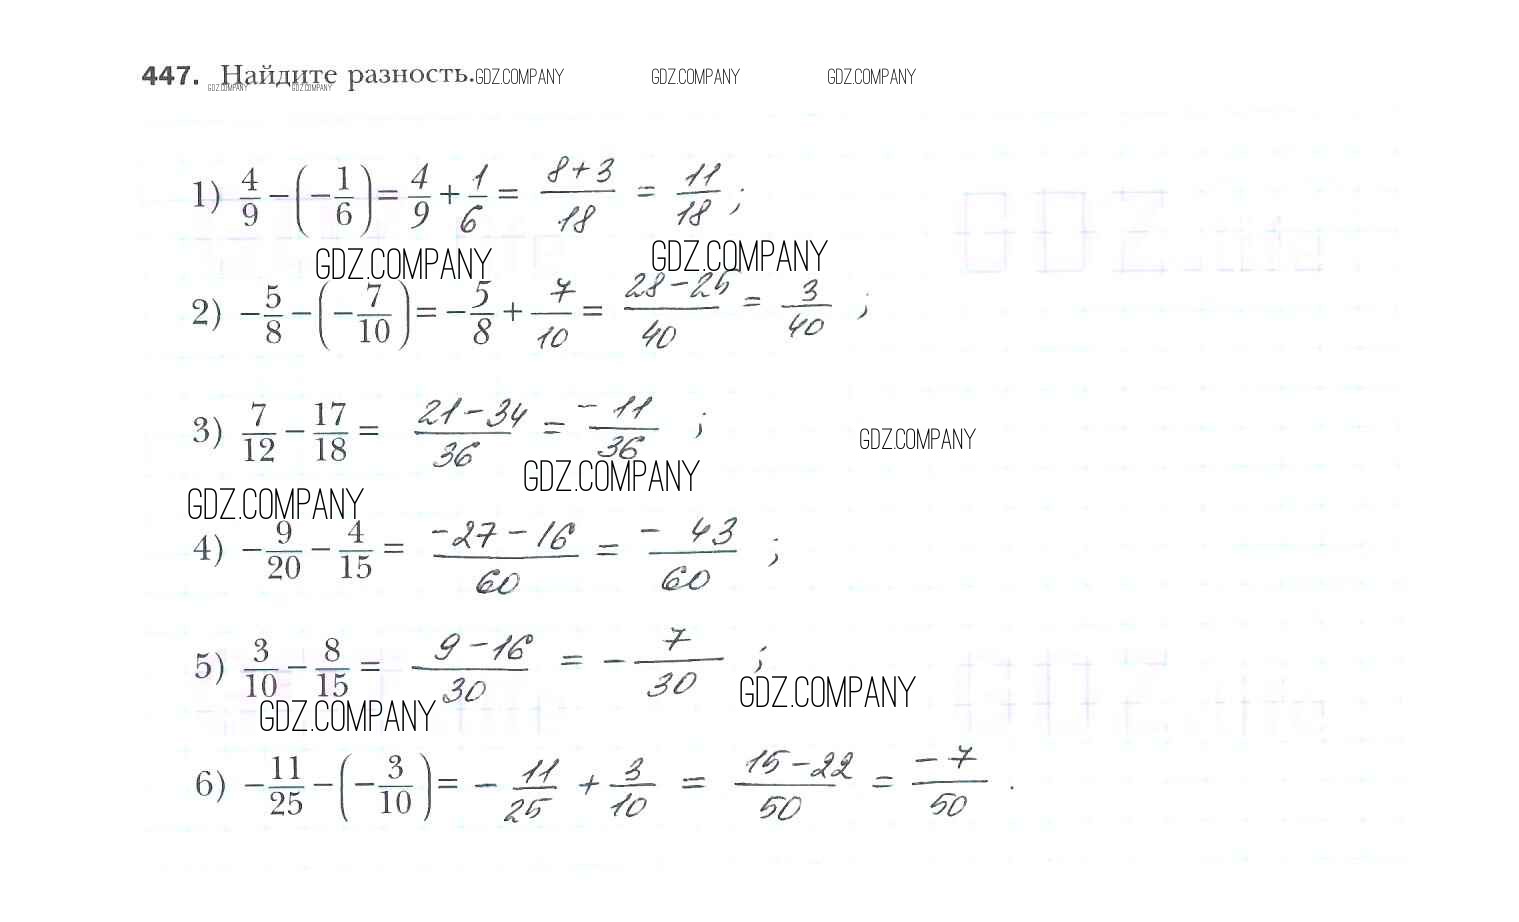 447. Найдите разность. GDZ.COMPANY GDZ.COMPANY GDZ.COMPANY
GDZ.COMPANY GDZ.COMPANY
1) 4/9 − (−1/6) = 4/9 + 1/6 = 8+3/18 = 11/18 ;
GDZ.COMPANY GDZ.COMPANY
2) −5/8 − (−7/10) = −5/8 + 7/10 = 28−25/40 = 3/40 ;
3) 7/12 − 17/18 = 21−34/36 = −11/36 ;
GDZ.COMPANY
GDZ.COMPANY
GDZ.COMPANY
4) −9/20 − 4/15 = −27−16/60 = −43/60 ;
5) 3/10 − 8/15 = 9−16/30 = −7/30 ;
GDZ.COMPANY
GDZ.COMPANY
6) −11/25 − (−3/10) = −11/25 + 3/10 = 15−22/50 = −7/50 .